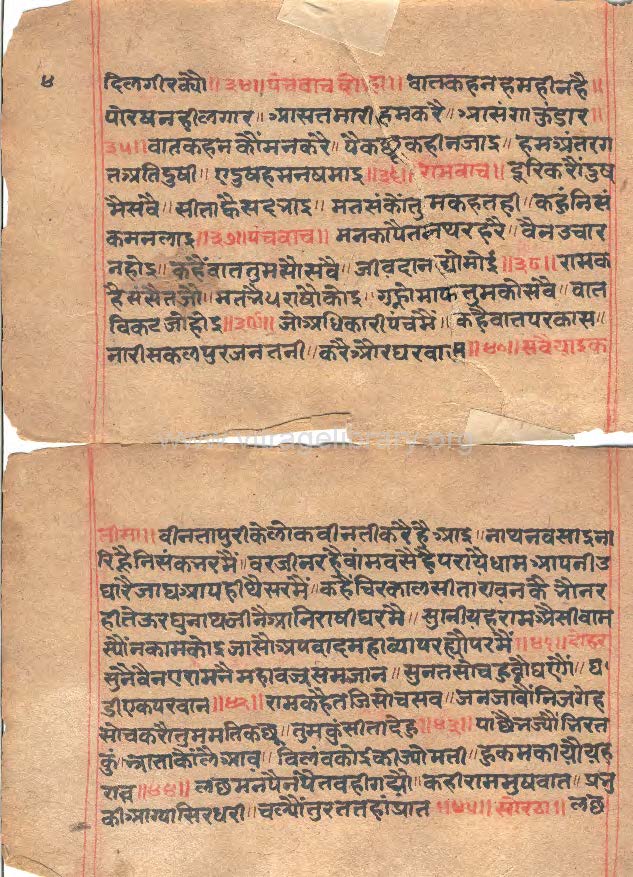 ४
दिलगीरक्यौ॥३४॥पंचवाच दोहा॥ वातकहन हमहीनहै॥
पोरषनहीलगार॥ आसतमारीहमकरै॥
३५॥वातकहनकौंमनकरै॥ पैकछूकहीनजाइ॥ हमअंतरग
तअतिदुषी॥ एदुषहमनषमाइ॥३६॥रामवाच॥ दूरिकरौंदुष
मैसवै॥ सीताकैसदभाइ॥ मतसंकोतुमकहतही॥ कहुंनिसं
कमनलाइ॥३७॥पंचवाच॥ वैनउचार
नहोइ॥ कहैंवाततुमसौसवै॥ जीवदान द्योमोइ॥३८॥रामक
हैसंसैतजौ॥ तुमकोसवै॥ वात
विकटजोहोइ॥३९॥जोअधिकारीपंचमैं॥ कहैवातपरकास
नारीसकलपुरजनतनी॥करैऔरघरवास॥४०॥सवैयाइक
www.jinragelibrary.org
तीसा॥ वीनतापुरीकेलोकवीनतीकरैहैआइ॥नाथनवसाइना
रिहैनिसंकनरमैं॥ वरजीनरहैवांमवसैहैपरायैधामआपनीउ
घारैजाघआपहीथैसरमैं॥ कहैंचिरकालसीतारावनकैभौनर
हीतेऊरघुनाथजीनैआनिराषीघरमै॥ सुनीयहरामअैसीवाम
स्यौंनकामकोइजासौअपवादमहाव्यापरह्यौपरमैं॥४१॥दोहर
सुनैवैनएरामनैमहावज्रसमजान॥ सुनतसोच
डीएकपरवान॥४२॥रामकहैतजिसोचसव॥जनजावौनिजगेह
सोचकरौतुममतिकछू॥तुमकुंसीतादेह॥४३॥
कुं॥भ्राताकौलैआव॥ विलंवकोइकीज्योमती॥ हुकमकीयौयह
राव॥४४॥ लछमनपैनपैतवहीगयौ॥कहीराममुषवात॥ प्रभु
कीआग्यासिरधरी॥चल्यौतुरततहांभ्रात॥४५॥सोरठा॥ लछ